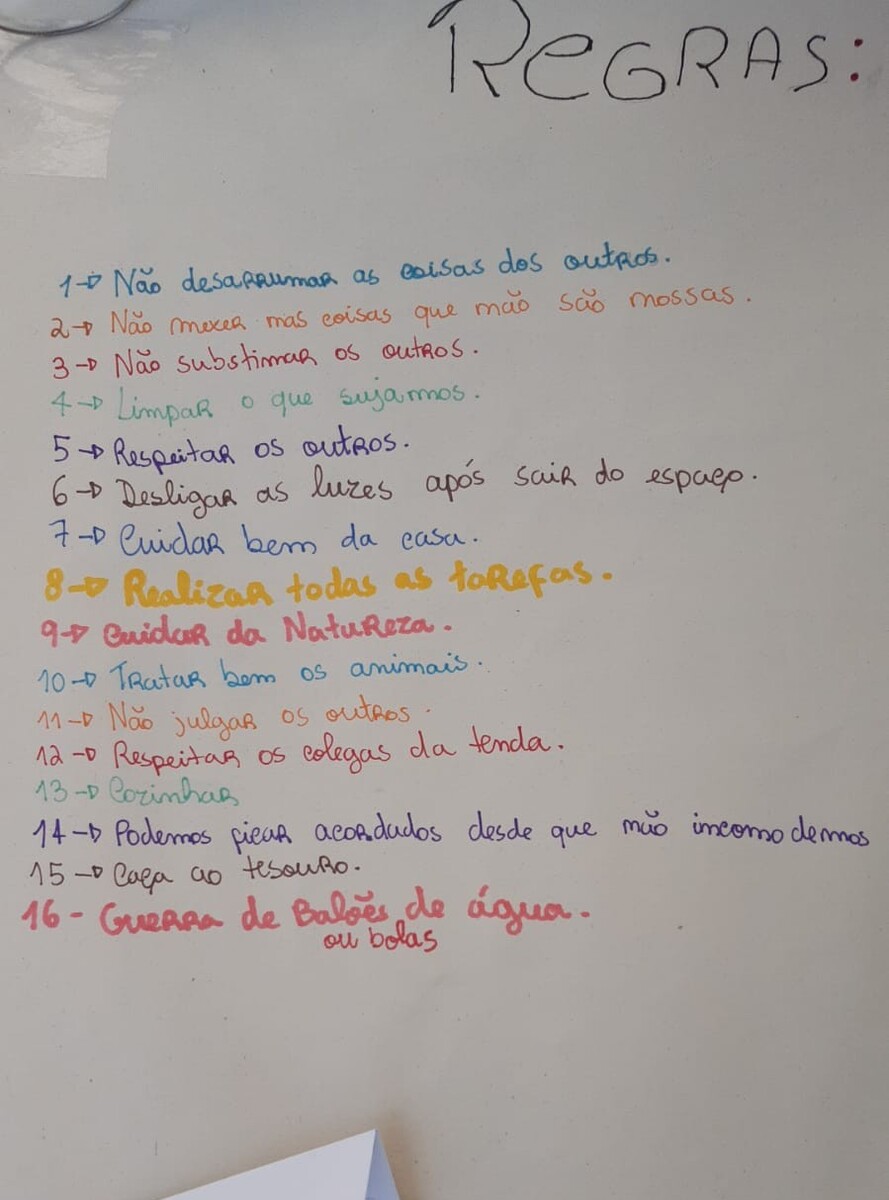 REGRAS:
1-> Não desarrumar as coisas dos outros.
2-> Não mexer nas coisas que não são nossas.
3-> Não substimar os outros.
4-> Limpar o que sujarmos.
5-> Respeitar os outros.
6-> Desligar as luzes após sair do espaço.
7-> Cuidar bem da casa.
8-> Realizar todas as tarefas.
9-> Cuidar da Natureza.
10-> Tratar bem os animais.
11-> Não julgar os outros.
12-> Respeitar os colegas da tenda.
13-> Cozinhar
14-> Podemos ficar acordados desde que não incomodemos
15-> Caça ao tesouro.
16- Guerra de Balões de água.
ou bolas